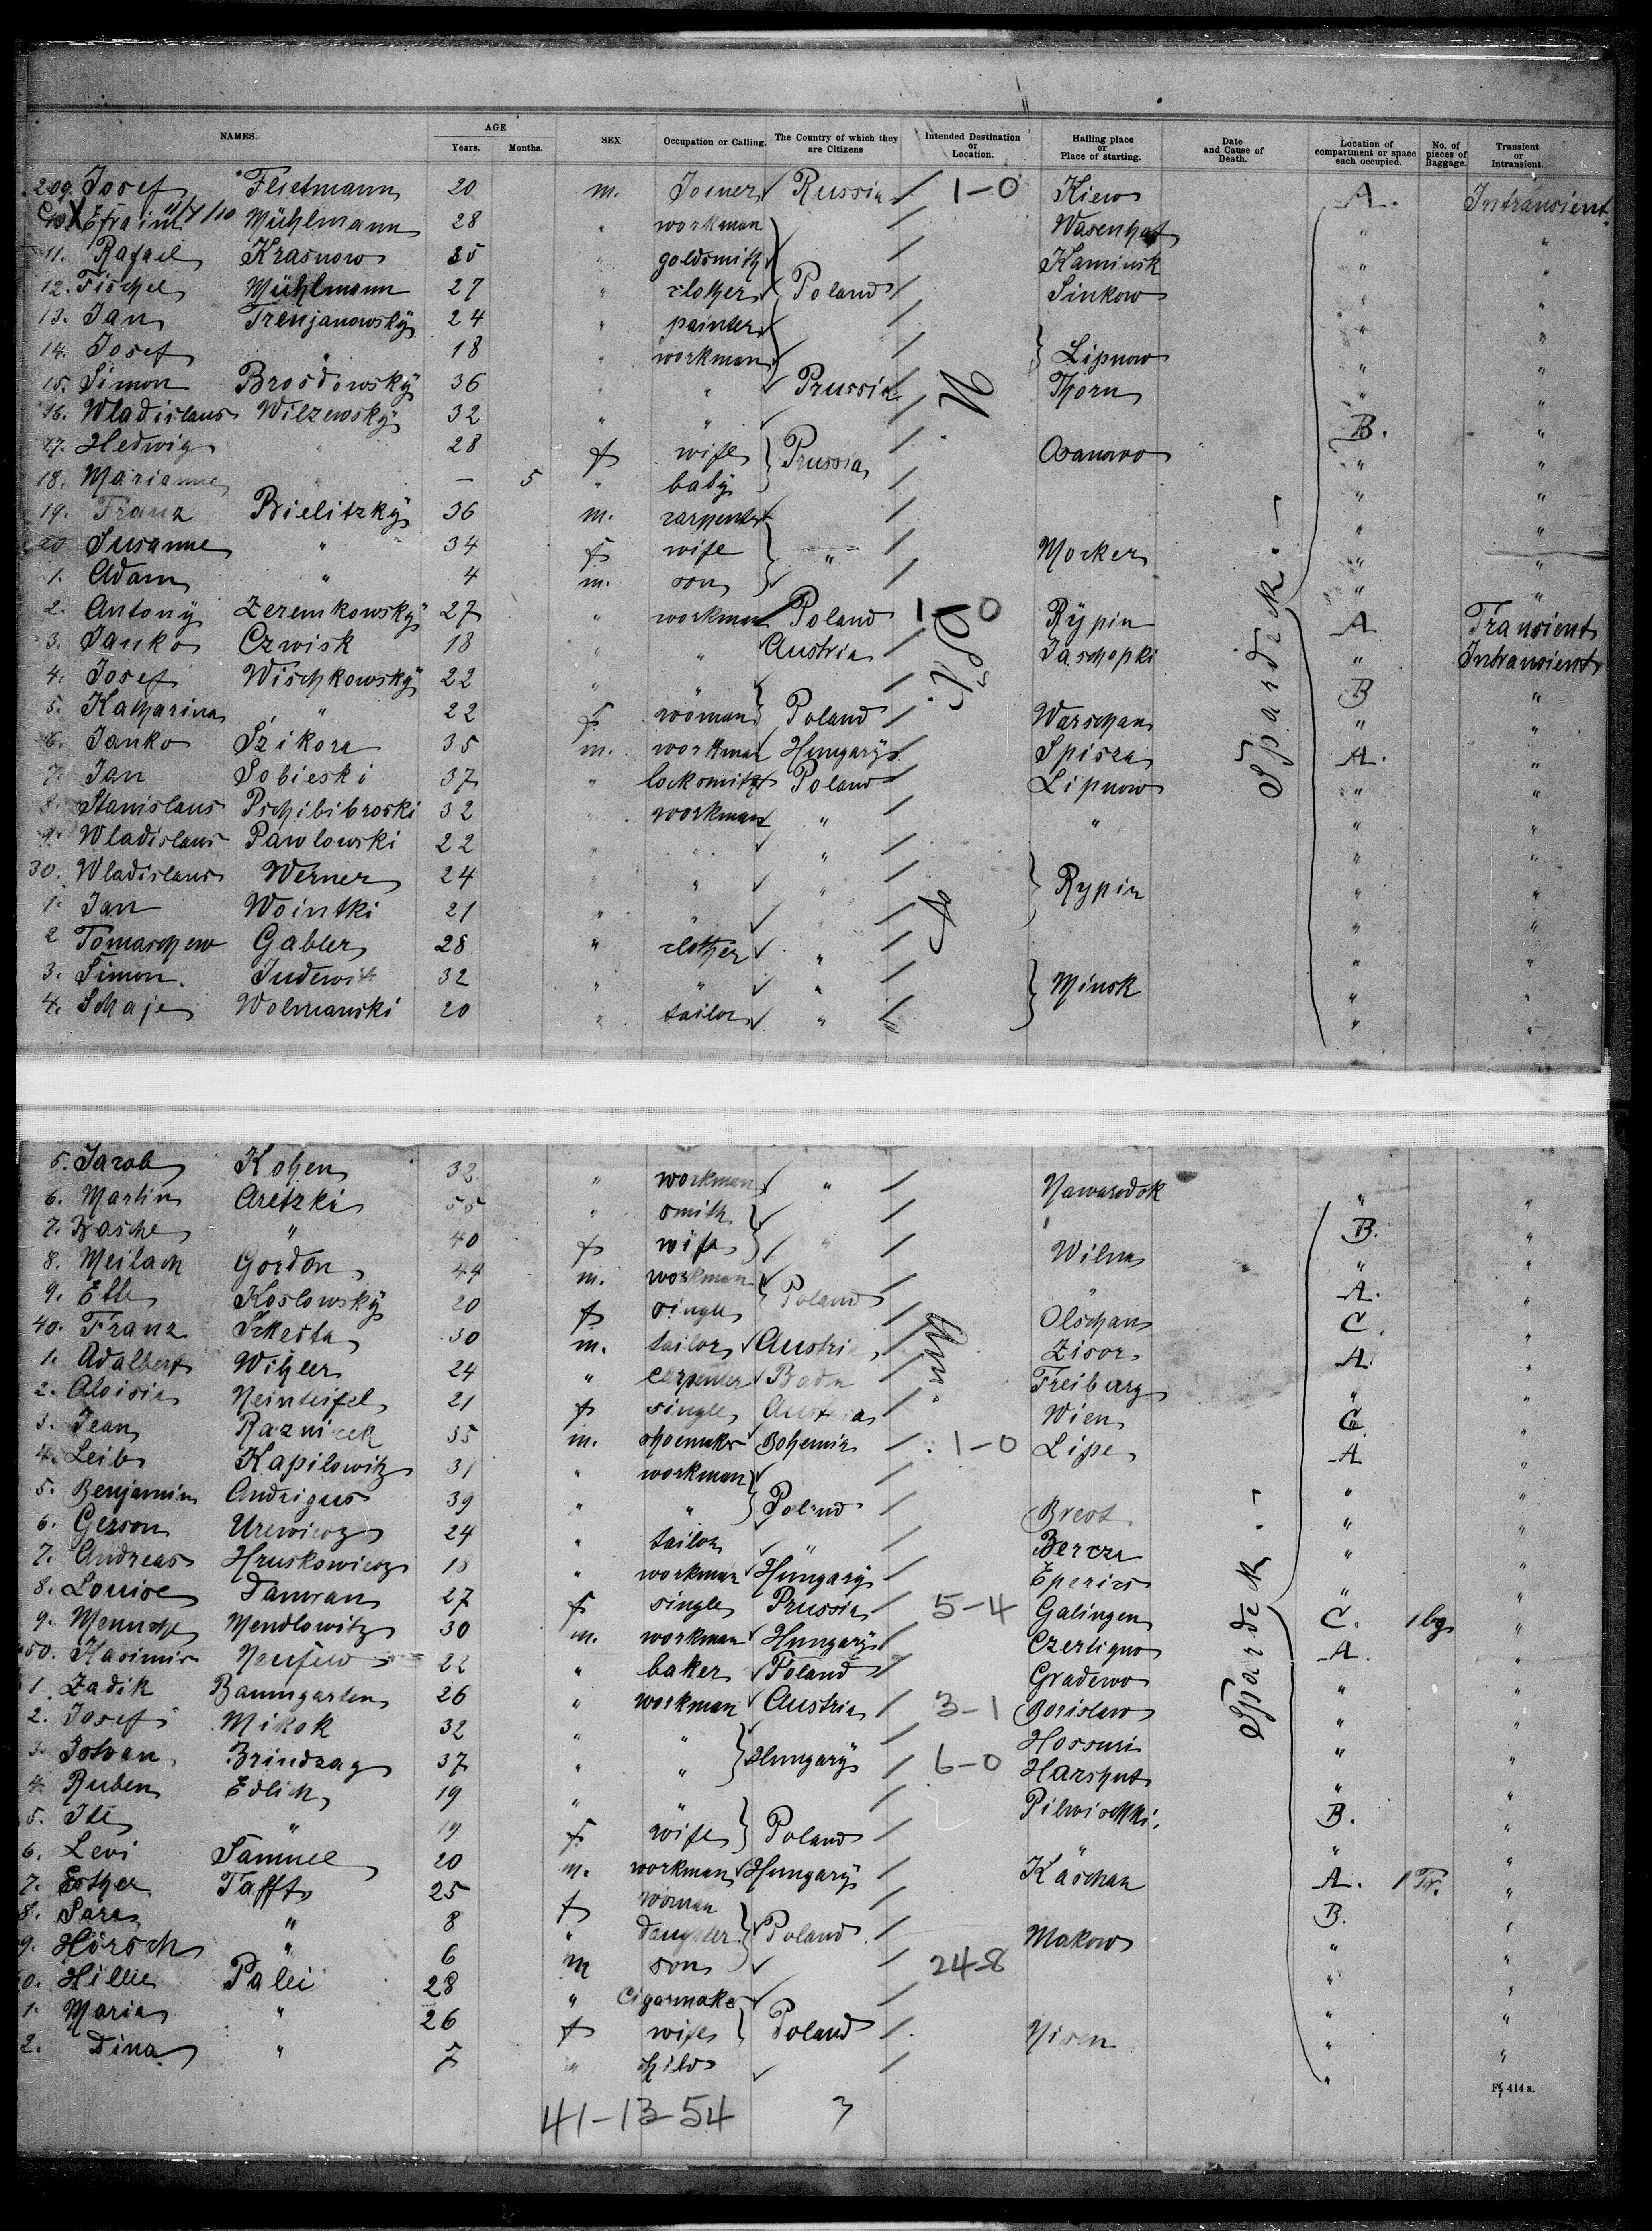 NAMES. AGE Years. Months. SEX Occupation or Calling. The Country of which they are Citizens Intended Destination or Location. Hailing place or Place of starting. Date and Cause of Death. Location of compartment or space each occupied. No. of pieces of Baggage. Transient or Intransient.
209. Josef Flietmann 20 m. Joiner Russia 1-0 Kiew A. Intransient
10 Efraim Mühlmann 28 " workman Wasenhof " "
11. Rafael Krasnow 35 " goldsmith Kaminsk " "
12. Fischel Mühlmann 27 " clother Poland Sinkow " "
13. Jan Trenjanowský 24 " painter " "
14. Josef " 18 " workman Lipnow " "
15. Simon Brosdowský 36 " " Prussia Thorn " "
16. Wladislaus Wilzewský 32 " " B. "
17. Hedwig " 28 f wife Prussia Osanowo " "
18. Marianne " — 5 " baby " "
19. Franz Bielitzký 36 m. carpenter " "
20 Susanne " 34 f wife " Mocker " "
1. Adam " 4 m. son " "
2. Antoný Zeremkowský 27 " workman Poland 1-0 Rýpin A Transient
3. Janko Czwisk 18 " " Austria Jaschopki " Intransient
4. Josef Wischkowský 22 " " B "
5. Katharina " 22 f woman Poland Warschau " "
6. Janko Szikora 35 m. workman Hungarý Spisza A. "
7. Jan Sobieski 37 " locksmith Poland Lipnow " "
8. Stanislaus Pschibibroski 32 " workman " " " "
9. Wladislaus Pawlowski 22 " " " " "
30. Wladislaus Werner 24 " " " Rypin " "
1. Jan Wointki 21 " " " " "
2 Tomaschew Gabler 28 " clother " " "
3. Simon Judewitz 32 " " " Minsk " "
4. Schaje Wolmanski 20 " tailor " " "
N. York
Spardeck. -
5. Jacob Kohen 32 " workman " Nawarodok " "
6. Martin Aretzki 55 " smith B. "
7. Basche " 40 f wife " Wilna " "
8. Meilach Gordon 44 m. workman " A. "
9. Etle Koslowský 20 f single Poland Olschan C. "
40. Franz Skesta 30 m. tailor Austria Zisor A. "
1. Adalbert Wihler 24 " carpenter Baden Freiburg " "
2. Aloisia Neinteifel 21 f single Austria Wien C "
3. Jean Raznicek 35 m. shoemaker Bohemia 1-0 Lipe A "
4. Leib Kapilowitz 31 " workman " "
5. Benjamin Andrigus 39 " " Poland Brest " "
6. Gerson Urewicz 24 " tailor " Bercza " "
7. Andreas Hruskowicz 18 " workman Hungarý Eperies " "
8. Louise Damran 27 f single Prussia 5-4 Galingen C. 1 bg. "
9. Mensche Mendlowitz 30 m. workman Hungarý Czerligno A. "
50. Kasimir Neufeld 22 " baker Poland Gradewo " "
1. Zadik Baumgarten 26 " workman Austria 3-1 Borislaw " "
2. Josef Mikok 32 " " Hossuri " "
3. Istvan Brindzag 37 " " Hungarý 6-0 Harshut " "
4. Ruben Edlich 19 " " Pilwischki. B. "
5. Ite " 19 f wife Poland " " "
6. Levi Samuel 20 m. workman Hungarý Kaschau A. 1 Tr. "
7. Esther Tafft 25 f woman B. "
8. Sara " 8 " daughter Poland Makow " "
9. Hirsch " 6 m son 24-8 " "
0. Hillie Palei 28 " Cigarmaker " "
1. Maria " 26 f wife Poland Nisen " "
2. Dina " 7 " child " "
Spardeck. -
41-13-54
414 a.